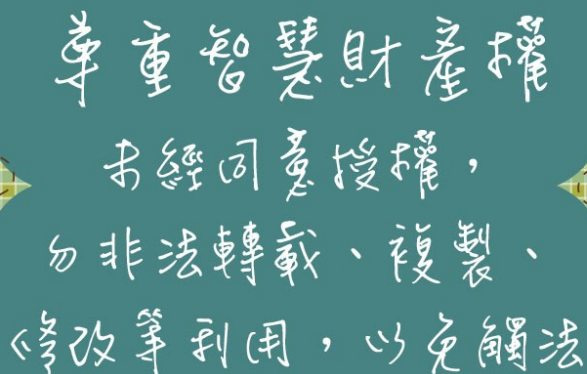 尊重智慧財產權
未經同意授權，
勿非法轉載、複製、
修改等利用，以免觸法